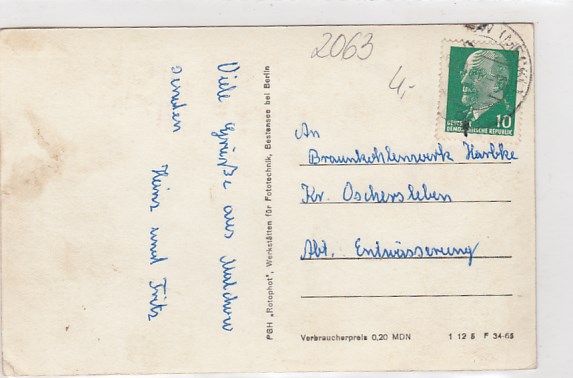 2063
4,-
10
DEUTSCHE
DEMOKRATISCHE REPUBLIK
Viele Grüße aus Malchow
senden
Heinz und Fritz
PBH „Rotophot", Werkstätten für Fototechnik, Bestensee bei Berlin
An
Braunkohlenwerk Harbke
Kr. Oschersleben
Abt. Entwässerung
Verbraucherpreis 0,20 MDN
1 12 5 F 34-65